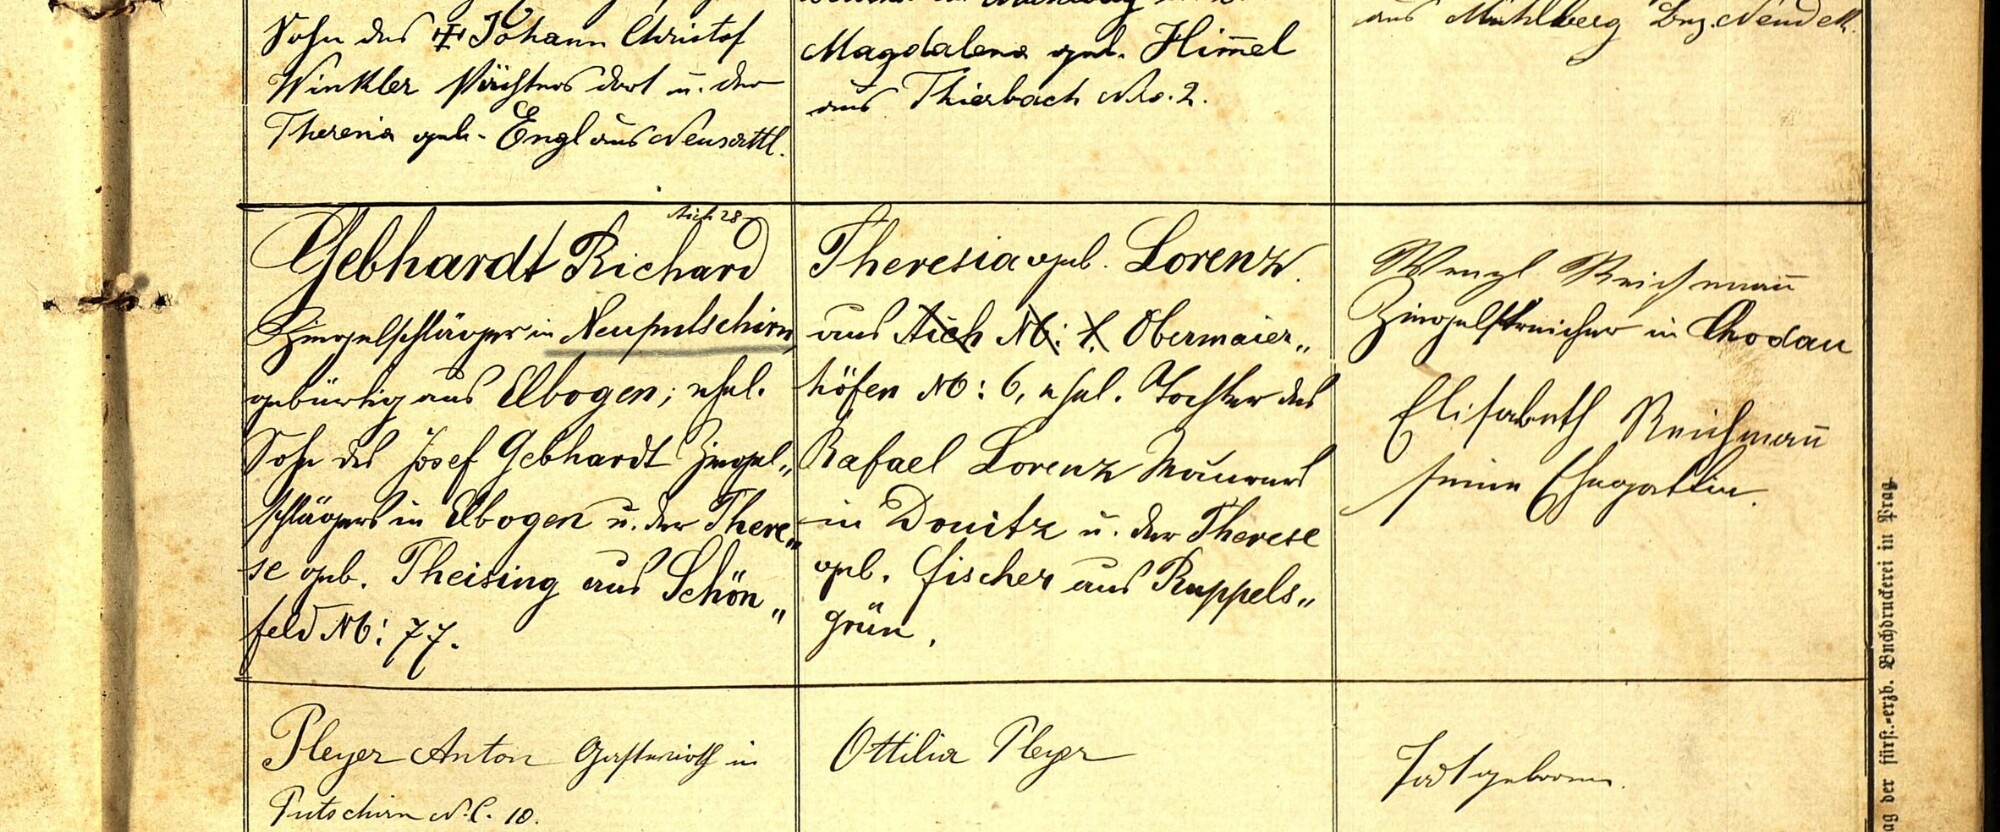 Sohn des Johann Christof
Winkler Pächters dort u. der
Theresia geb. Engl aus Neusattl.
Magdalena geb. Him̄el
aus Thierbach Nro. 2.
aus Mühlberg Bez. Neudek.
Aich 28
Gebhardt Richard
Ziegelschläger in Neuputschirn,
gebürtig aus Elbogen; ehel.
Sohn des Josef Gebhardt Ziegel„
schlägers in Elbogen u. der There„
se geb. Theising aus Schön„
feld No: 77.
Theresia geb. Lorenz.
aus Aich No: 1. Obermaier„
höfen No: 6, ehel. Tochter des
Rafael Lorenz Maurers
in Donitz u. der Therese
geb. Fischer aus Ruppels„
grün.
Wenzl Reichman̄
Ziegelstreicher in Chodau
Elisabeth Reichman̄
seine Ehegattin.
Pleyer Anton Gastwirth in
Putschirn N.C. 10.
Ottilia Pleyer
Todtgeboren.
ag der fürst.-erzb. Buchdruckerei in Prag.